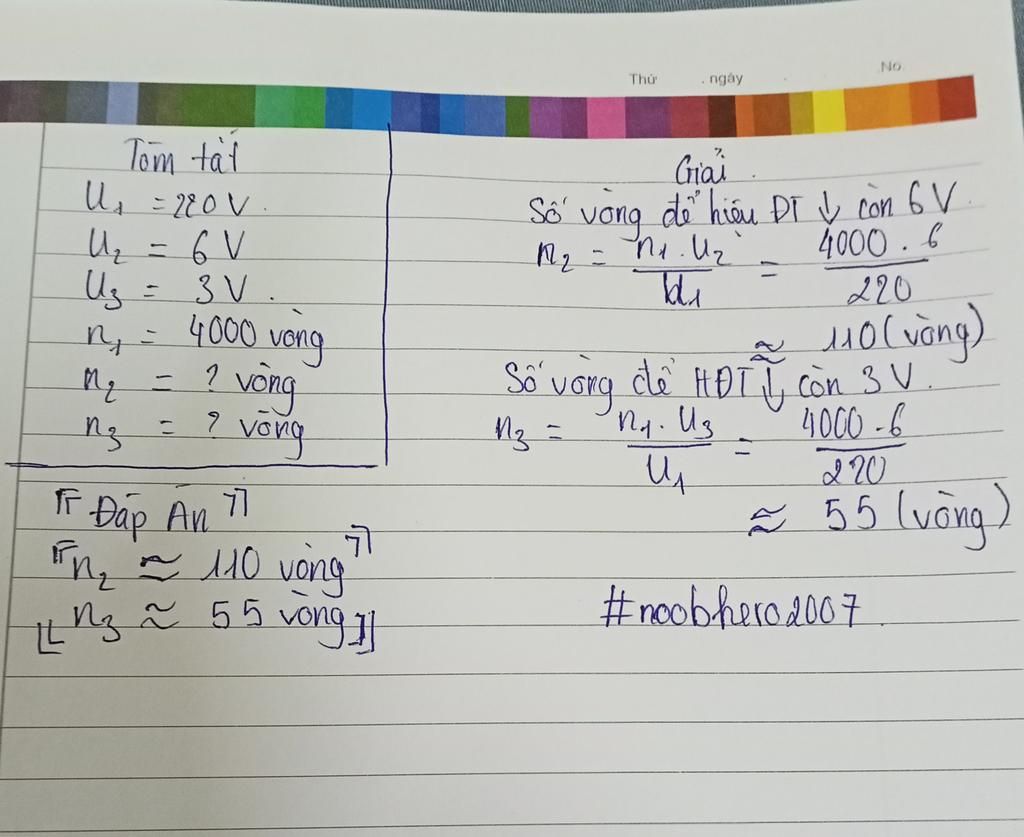 Thứ . ngày . No.
Tóm tắt
U₁ = 220 V.
U₂ = 6 V
U₃ = 3 V.
n₁ = 4000 vòng
n₂ = ? vòng
n₃ = ? vòng
⌈⌈ Đáp Án ⌉⌉
⌈⌈ n₂ ≈ 110 vòng ⌉⌉
⌊⌊ n₃ ≈ 55 vòng ⌋⌋
Giải.
Số vòng để hiệu ĐT ↓ còn 6 V.
n₂ = n₁ . U₂ / U₁ = 4000 . 6 / 220
≈ 110 (vòng)
Số vòng để HĐT ↓ còn 3 V.
n₃ = n₁ . U₃ / U₁ = 4000 . 6 / 220
≈ 55 (vòng)
#noobhero2007.